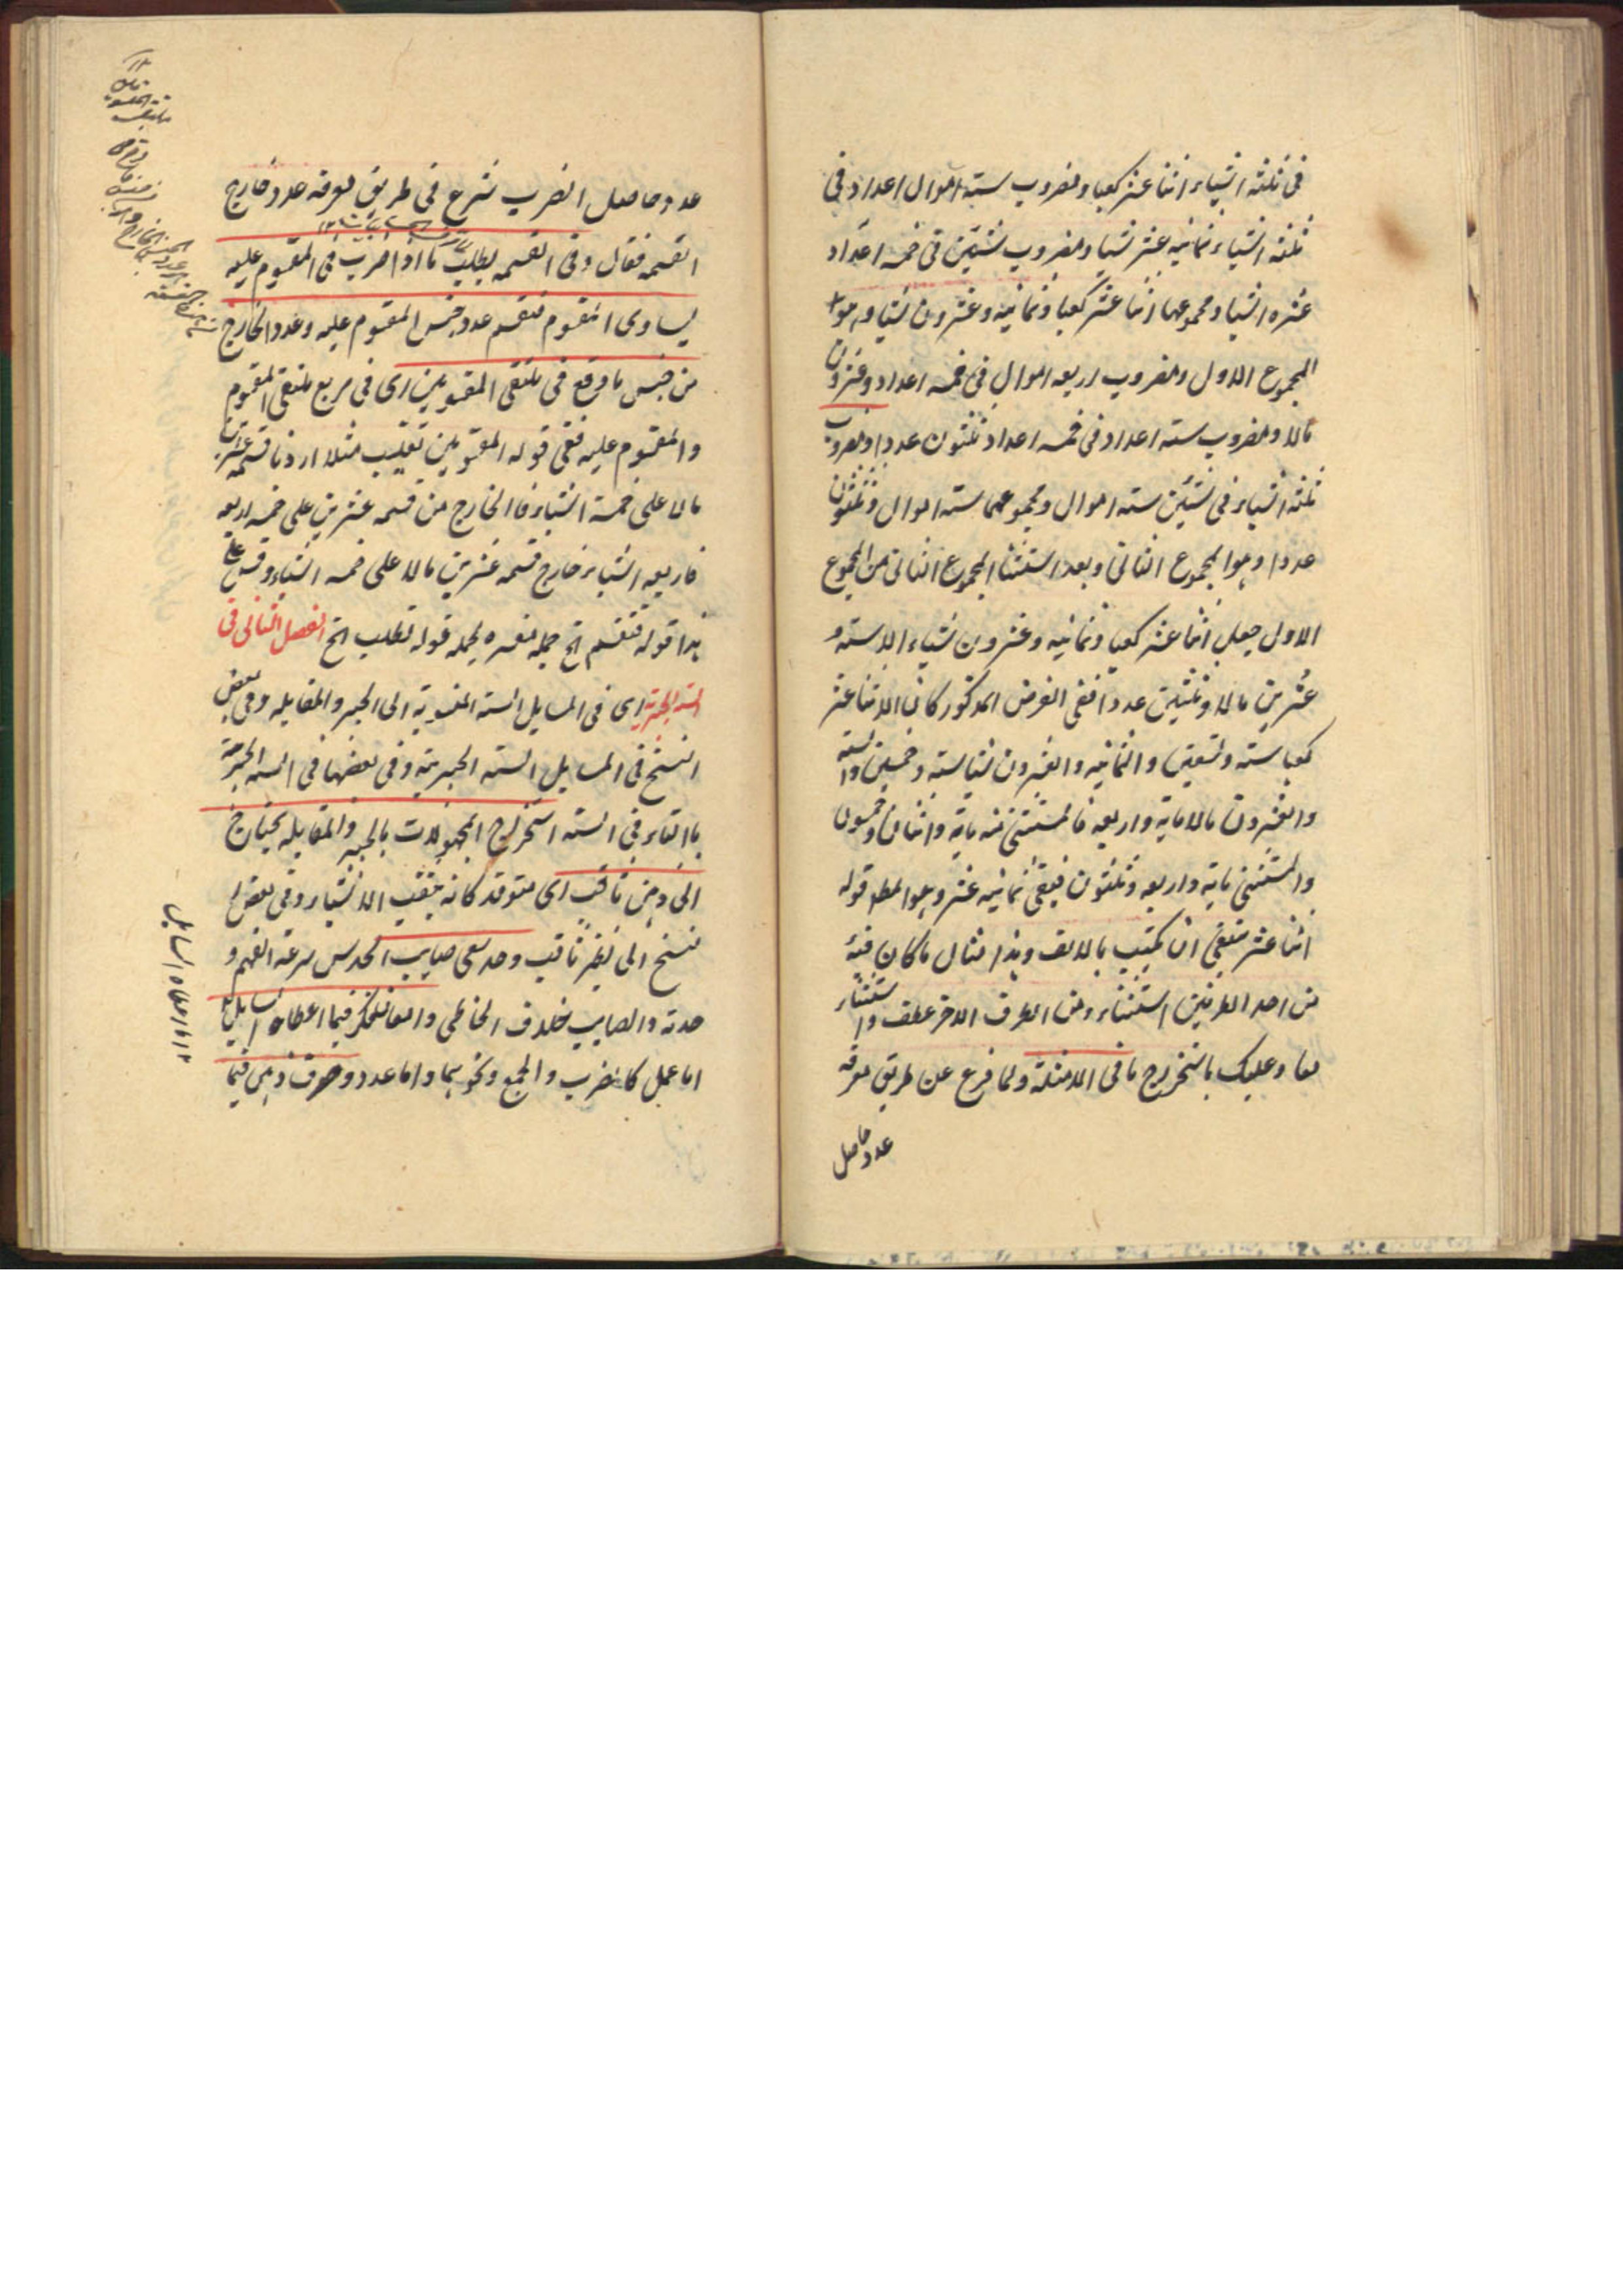 فى ثلثه اشياء اثنا عشر كعبا ومضروب سته اموال اعداد فى
ثلثه اشياء ثمانيه عشر شيا ومضروب شيئين فى خمسه اعداد
عشره اشيا ومجموعها اثنا عشر كعبا وثمانيه وعشرون شيا وهو
المجموع الاول ومضروب اربعه اموال فى خمسه اعداد وعشرون
مالا ومضروب سته اعداد فى خمسه اعداد ثلثون عددا ومضروب
ثلثه اشياء فى شيئين سته اموال ومجموعهما سته اموال وثلثون
عددا وهوا لمجموع الثانى وبعد استثنا المجموع الثانى من المجموع
الاول حصل اثنا عشر كعبا وثمانيه وعشرون شياء الا سته و
عشرين مالا وثلثين عددا ففى الفرض المذكور كان الاثنا عشر
كعبا سته وتسعين والثمانيه والعشرون شيا سته وخمسين والسته
والعشرون مالا مايه واربعه فالمستثنى منه مايه واثنان وخمسون
والمستثنى مايه واربعه وثلثون فيبقى ثمانيه عشر وهوا لمط قوله
اثنا عشر ينبغى ان يكتب بالالف وهذا مثال ما كان فيه
من احد الطرفين استثناء ومن الطرف الاخر عطف واستثناء
معا وعليك باستخراج ما فى الامثلة ولما فرغ عن طريق معرفه
عدد حاصل
عدد حاصل الضرب شرع فى طريق معرفه عدد خارج
القسمه فقال وفى القسمه يطلب ما اذا ضرب فى المقسوم عليه
ليساوى المقسوم فتقسم عدد جنس المقسوم عليه وعدد الخارج
من جنس ما وقع فى ملتقى المقسومين اى فى مربع ملتقى المقسوم
والمقسوم عليه ففى قوله المقسومين تغليب مثلا اردنا قسمه عشرين
مالا على خمسة اشياء فالخارج من قسمه عشرين على خمسه اربعه
فاربعه اشياء خارج قسمه عشرين مالا على خمسه اشياء وقس على
هذا قوله فتقسم الخ جمله مفسره لجمله قوله تطلب الخ الفصل الثانى فى
السته الجبريه اى فى المسايل السته المنسوبة الى الجبر والمقابله وفى بعض
النسخ فى المسايل السته الجبرية وفى بعضها فى السته الجبرية
بالتاء فى السته استخراج المجهولات بالجبر والمقابله يحتاج
الى ذهن ثاقب اى متوقد كانه يثقب الاشياء وفى بعض
نسخ الى نظر ثاقب وحدس صايب الحدس سرعة الفهم و
حدته والصايب خلاف الخاطى وامعان فكر فيما اعطاه السايل
اما عمل كالضرب والجمع ونحوهما واما عدد وصرف ذهن فيما